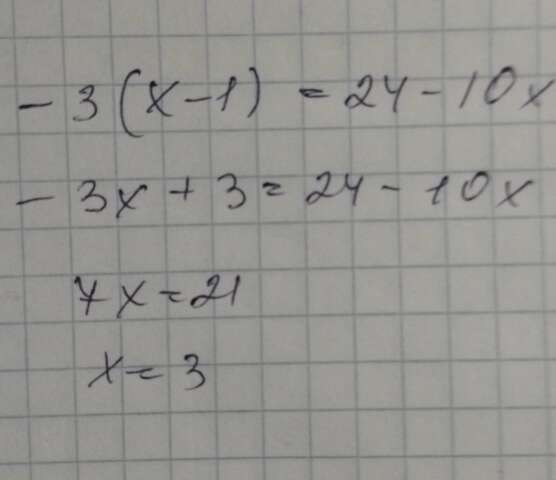 - 3(x-1) = 24-10x
- 3x + 3 = 24 - 10x
7x = 21
x = 3